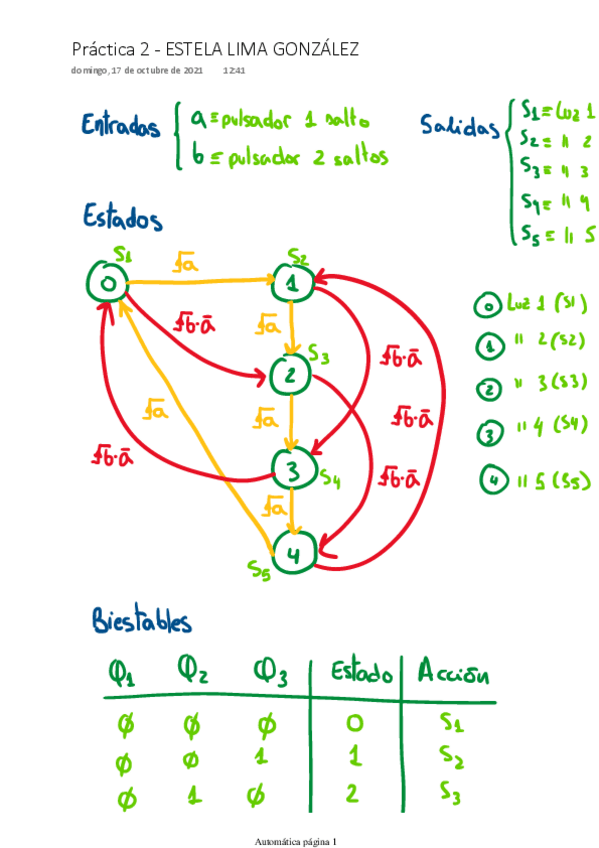 Práctica 2 - ESTELA LIMA GONZÁLEZ
domingo, 17 de octubre de 2021 12:41
Entradas { a ≡ pulsador 1 salto
b ≡ pulsador 2 saltos
Salidas { S1 ≡ Luz 1
S2 ≡ " 2
S3 ≡ " 3
S4 ≡ " 4
S5 ≡ " 5
Estados
S1
0
↑a
S2
1
↑b·ā
↑a
S3
2
↑b·ā
↑a
↑a
↑b·ā
↑b·ā
3
S4
↑b·ā
↑a
4
S5
0 Luz 1 (S1)
1 " 2 (S2)
2 " 3 (S3)
3 " 4 (S4)
4 " 5 (S5)
Biestables
Q1 Q2 Q3 Estado Acción
∅ ∅ ∅ 0 S1
∅ ∅ 1 1 S2
∅ 1 ∅ 2 S3
Automática página 1